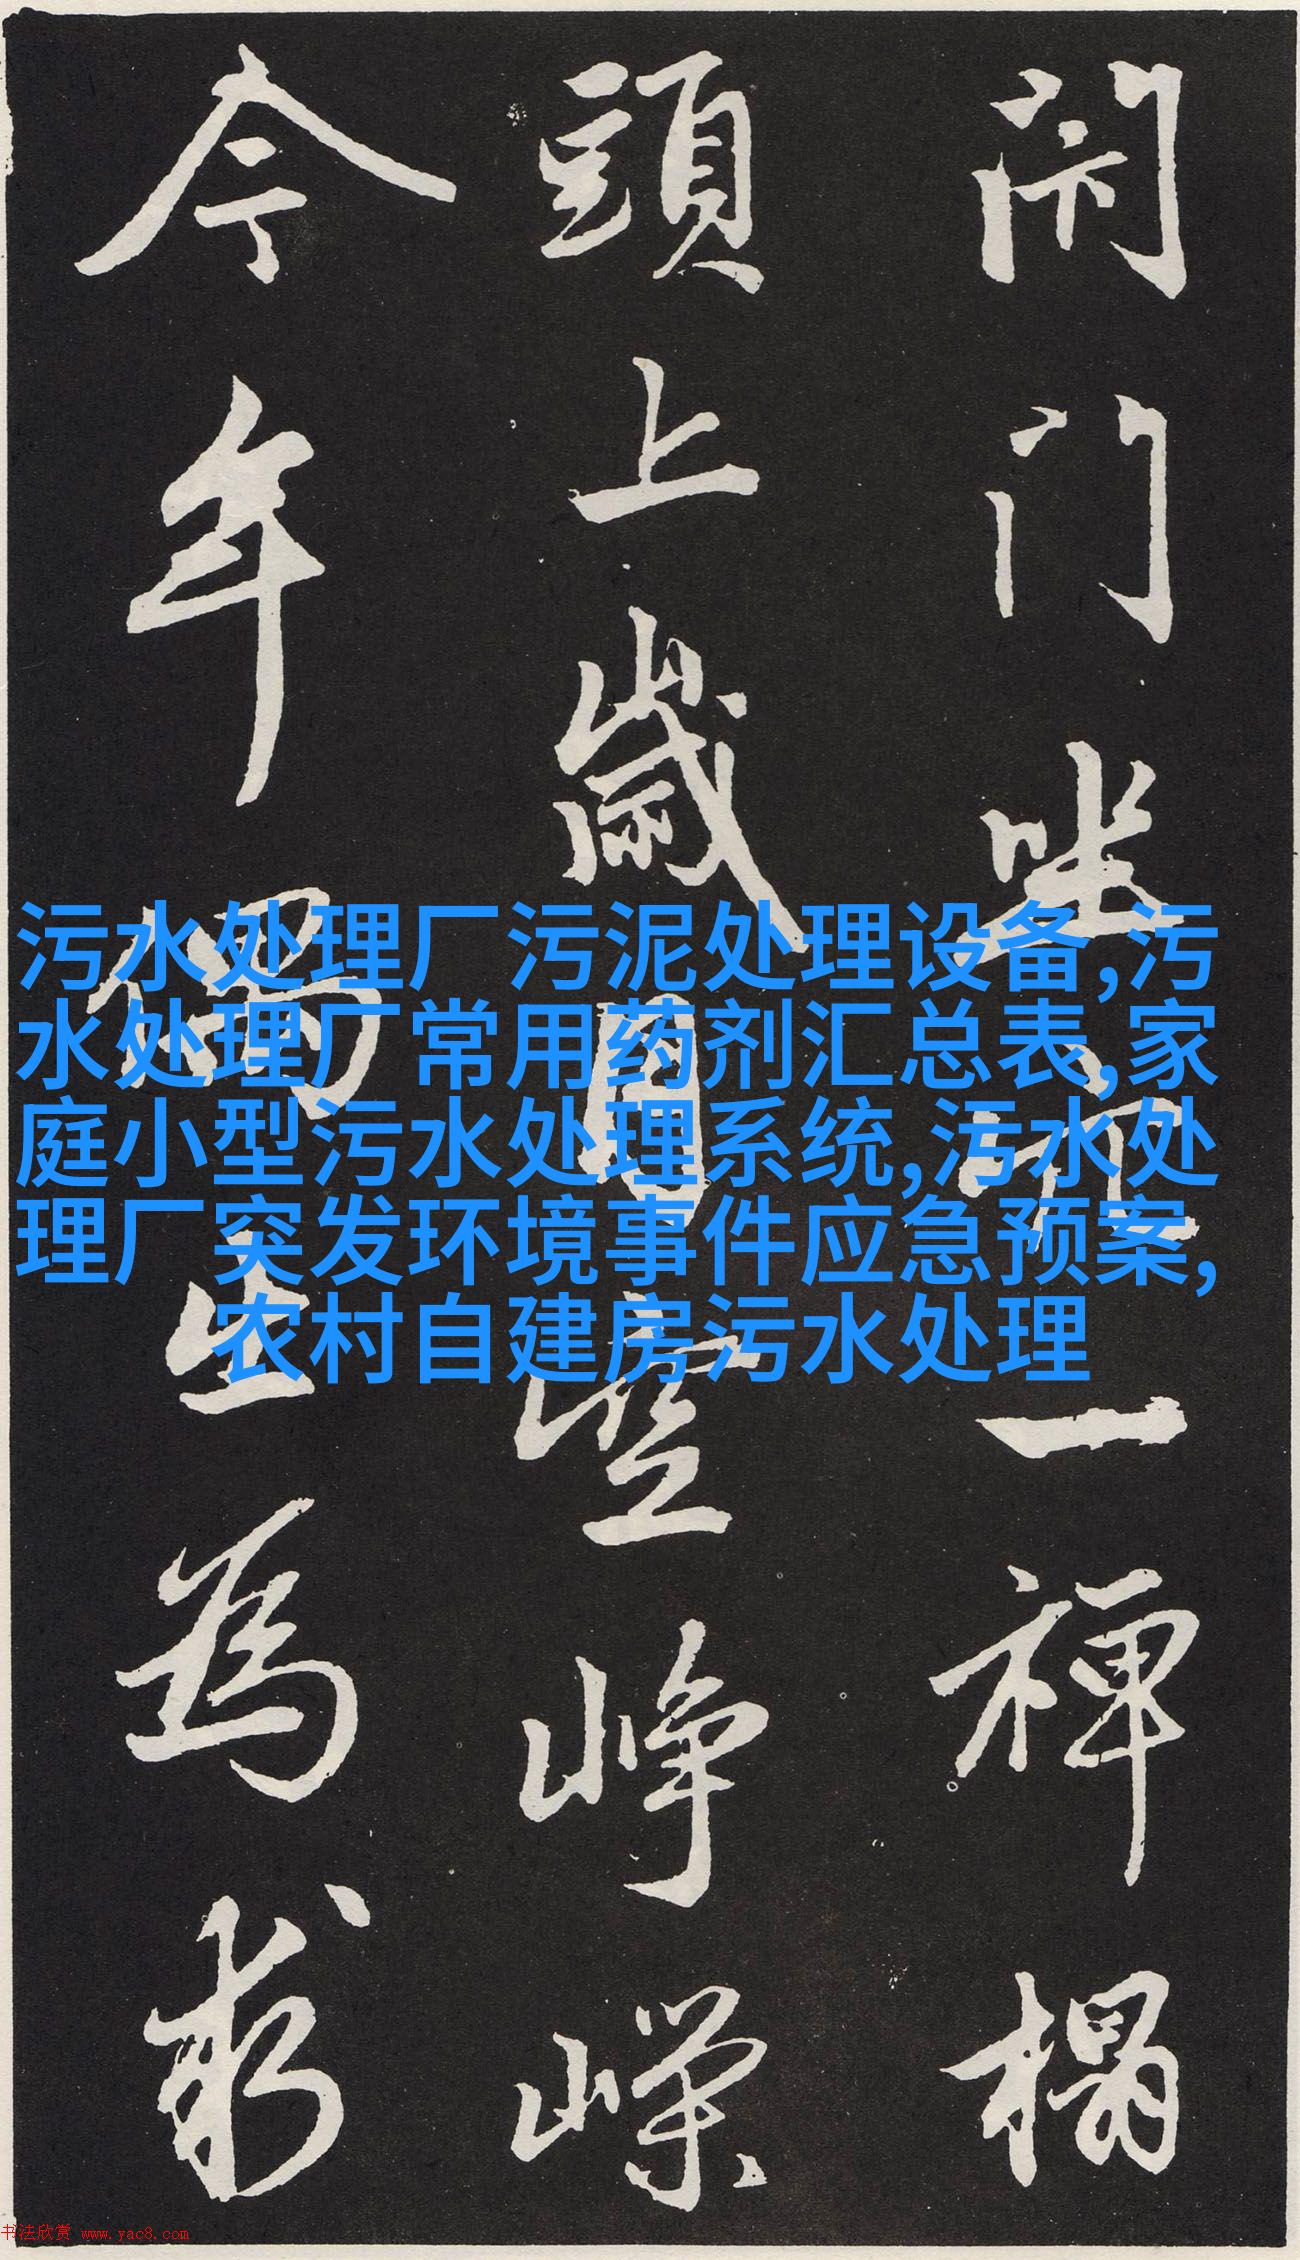 閉門坐穴一禪榻
頭上歲月空崢嶸
今年偶出為求
污水处理厂污泥处理设备,污
水处理厂常用药剂汇总表,家
庭小型污水处理系统,污水处
理厂突发环境事件应急预案,
农村自建房污水处理
书法欣赏 www.yac8.com